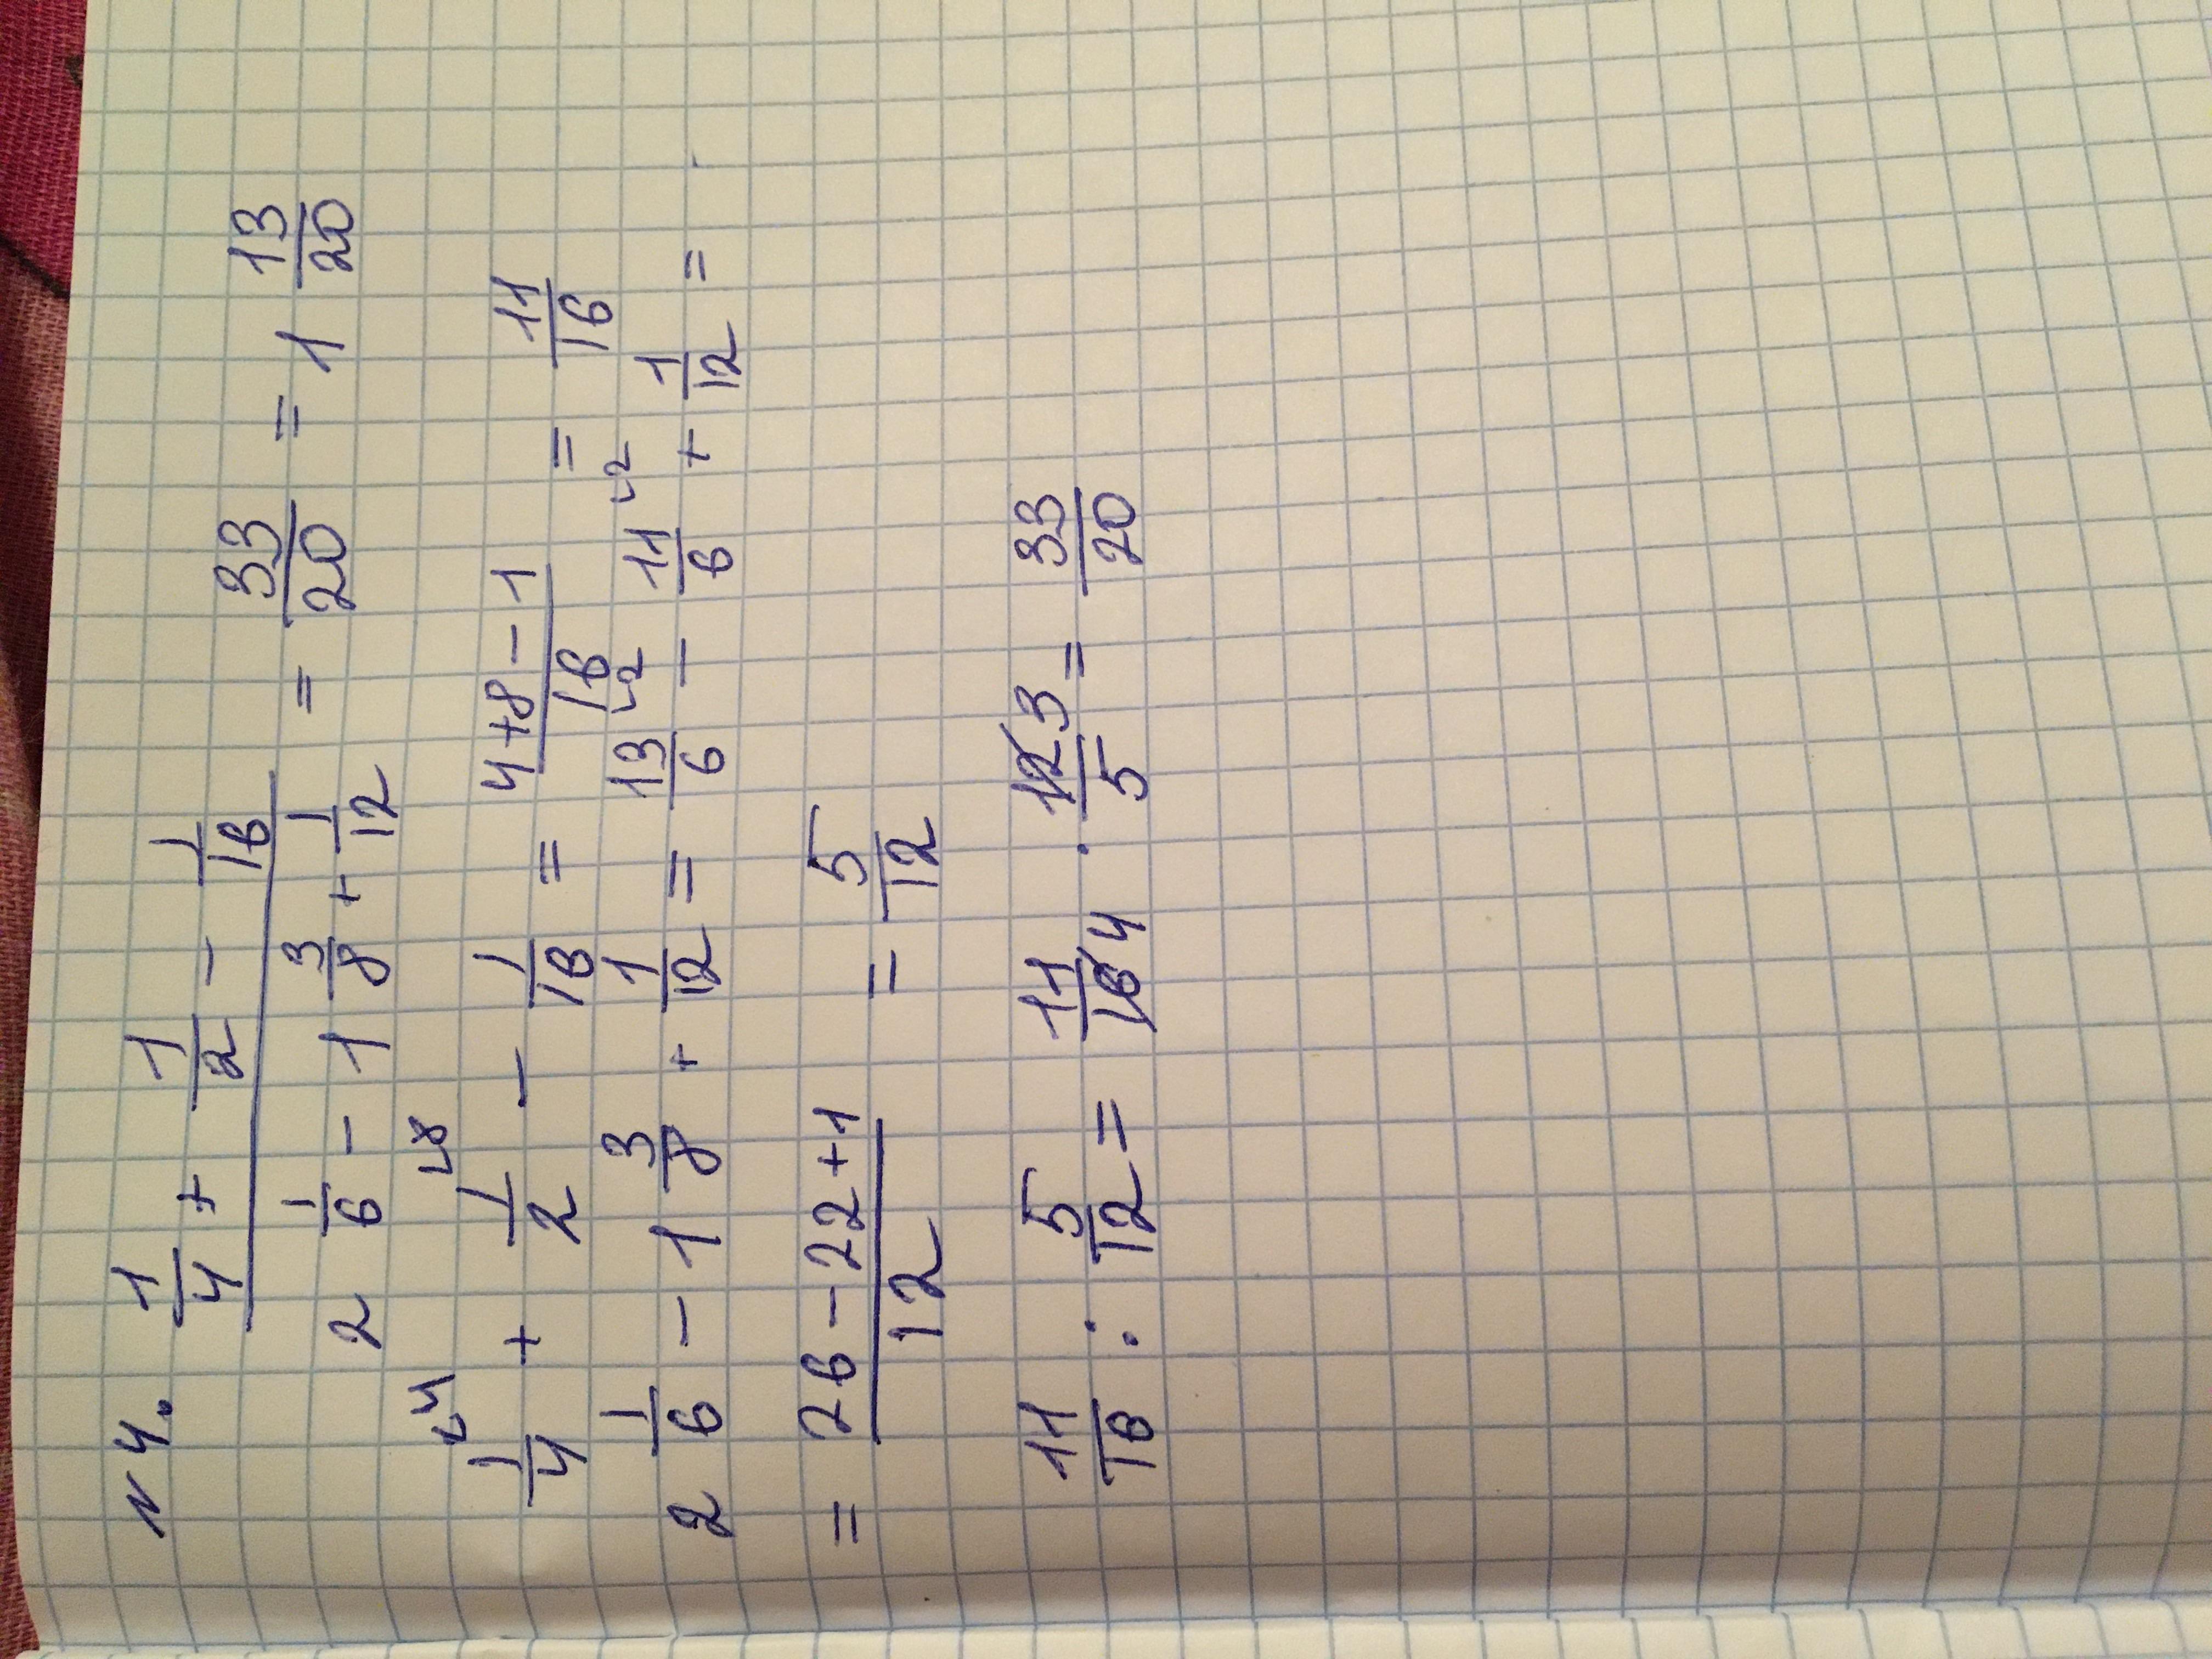 N 4.
1/4 + 1/2 - 1/16
2 1/6 - 1 3/8 + 1/12 = 33/20 = 1 13/20
1/4 ^4 + 1/2 ^8 - 1/16 = (4+8-1)/16 = 11/16
2 1/6 - 1 3/8 + 1/12 = 13/6 ^2 - 11/6 ^2 + 1/12 =
= (26-22+1)/12 = 5/12
11/16 : 5/12 = 11/16 4 · 12 3/5 = 33/20